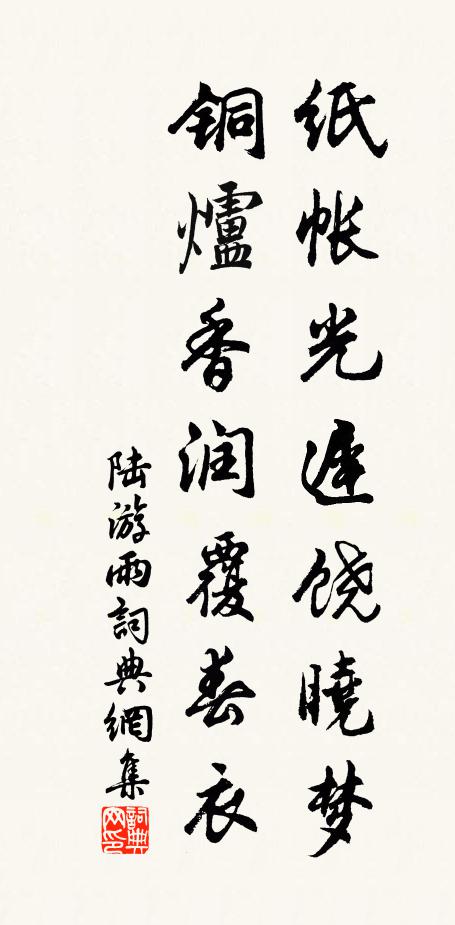 纸帐光遲饶曉梦
铜爐香润覆春衣
陆游雨詞典網集
詞典网印